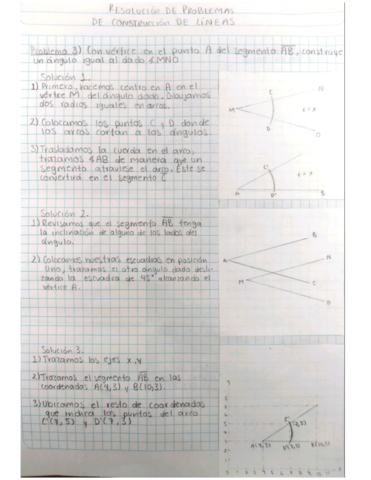 RESOLUCIÓN DE PROBLEMAS
DE CONSTRUCCIÓN DE LÍNEAS
Problema 3) Con vértice en el punto A del segmento AB, construye
un ángulo igual al dado ∡MNO
Solución 1.
1) Primero, hacemos centro en A en el
vértice M del ángulo dado. Dibujamos
dos radios iguales en arcos.
2) Colocamos los puntos C y D donde
los arcos cortan a los ángulos.
3) Trasladamos la cuerda en el arco,
trazamos ∡AB de manera que un
segmento atraviese el arco. Este se
convertirá en el segmento C
C
N
M
D
O
r = r
C'
r = r
A
D'
B
Solución 2.
1) Revisamos que el segmento AB tenga
la inclinación de alguno de los lados del
ángulo.
2) Colocamos nuestras escuadras en posición
uno, trazamos el otro ángulo dado desli-
zando la escuadra de 45° alcanzando el
vértice A.
B
A
N
M
C
O
Solución 3.
1) Trazamos los ejes x, y
2) Trazamos el segmento AB en las
coordenadas A(4,3) y B(10,3).
3) Ubicamos el resto de coordenadas
que indica los puntos del arco
C'(7,5) y D'(7,3)